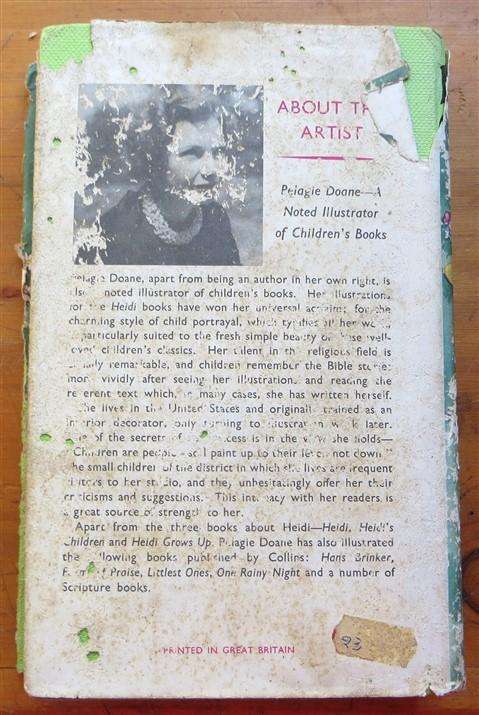 ABOUT
ARTIST
Pelagie Doane—A
Noted Illustrator
of Children's Books
Pelagie Doane, apart from being an author in her own right, is
also noted illustrator of children's books. Her illustrations
for the Heidi books have won her universal acclaim; for the
charming style of child portrayal, which typifies all her work,
particularly suited to the fresh simple beauty of these well-
loved children's classics. Her talent in the religious field is
really remarkable, and children remember the Bible stories
more vividly after seeing her illustration, and reading the
reverent text which, in many cases, she has written herself.
She lives in the United States and originally trained as an
interior decorator, only turning to illustration work later.
One of the secrets of success is in the view she holds—
"Children are people and I paint up to their level not down."
The small children of the district in which she lives are frequent
visitors to her studio, and they unhesitatingly offer her their
criticisms and suggestions. This intimacy with her readers is
a great source of strength to her.
Apart from the three books about Heidi—Heidi, Heidi's
Children and Heidi Grows Up, Pelagie Doane has also illustrated
the following books published by Collins: Hans Brinker,
of Praise, Littlest Ones, One Rainy Night and a number of
Scripture books.
PRINTED IN GREAT BRITAIN